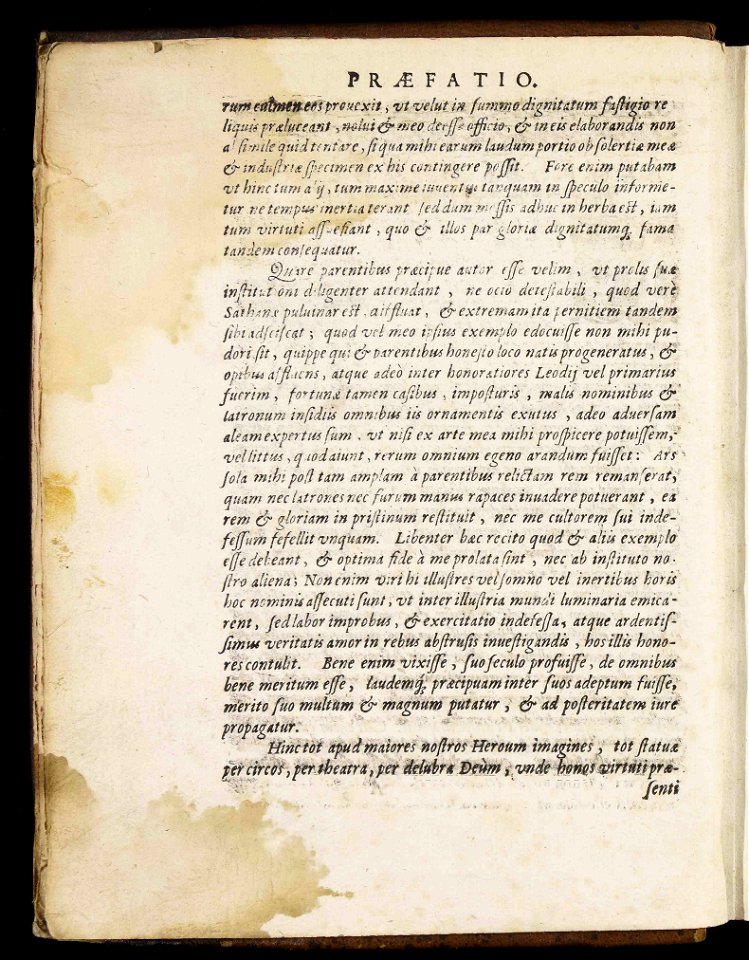 PRÆFATIO.
rum culmen eos prouexit, vt velut in summo dignitatum fastigio re
liquis præluceant, nolui & meo deesse officio, & in eis elaborandis non
absimile quid tentare, si qua mihi earum laudum portio ob solertiæ meæ
& industriæ specimen ex his contingere possit. Fore enim putabam
vt hinc tum alij, tum maxime iuuentus tanquam in speculo informe-
tur ne tempus inertia terant sed dum messis adhuc in herba est, iam
tum virtuti assuescant, quo & illos par gloriæ dignitatumq́. fama
tandem consequatur.
Quare parentibus præcipue autor esse velim, vt prolis suæ
institutioni diligenter attendant, ne ocio detestabili, quod verè
Sathanæ puluinar est, diffluat, & extremam ita pernitiem tandem
sibi adsciscat; quod vel meo ipsius exemplo edocuisse non mihi pu-
dori sit, quippe qui & parentibus honesto loco natis progeneratus, &
opibus affluens, atque adeò inter honoratiores Leodij vel primarius
fuerim, fortunæ tamen casibus, imposturis, malis nominibus &
latronum insidiis omnibus iis ornamentis exutus, adeo aduersam
aleam expertus sum, vt nisi ex arte mea mihi prospicere potuissem,
vel littus, quod aiunt, rerum omnium egeno arandum fuisset: Ars
sola mihi post tam amplam à parentibus relictam rem remanserat,
quam nec latrones nec furum manus rapaces inuadere potuerant, ea
rem & gloriam in pristinum restituit, nec me cultorem sui inde-
fessum fefellit vnquam. Libenter hæc recito quod & aliis exemplo
esse debeant, & optima fide à me prolata sint, nec ab instituto no-
stro aliena; Non enim viri hi illustres vel somno vel inertibus horis
hoc nominis assecuti sunt, vt inter illustria mundi luminaria emica-
rent, sed labor improbus, & exercitatio indefessa, atque ardentis-
simus veritatis amor in rebus abstrusis inuestigandis, hos illis hono-
res contulit. Bene enim vixisse, suo seculo profuisse, de omnibus
bene meritum esse, laudemq́. præcipuam inter suos adeptum fuisse,
merito suo multum & magnum putatur, & ad posteritatem iure
propagatur.
Hinc tot apud maiores nostros Heroum imagines, tot statuæ
per circos, per theatra, per delubra Deûm, vnde honos virtuti præ-
senti